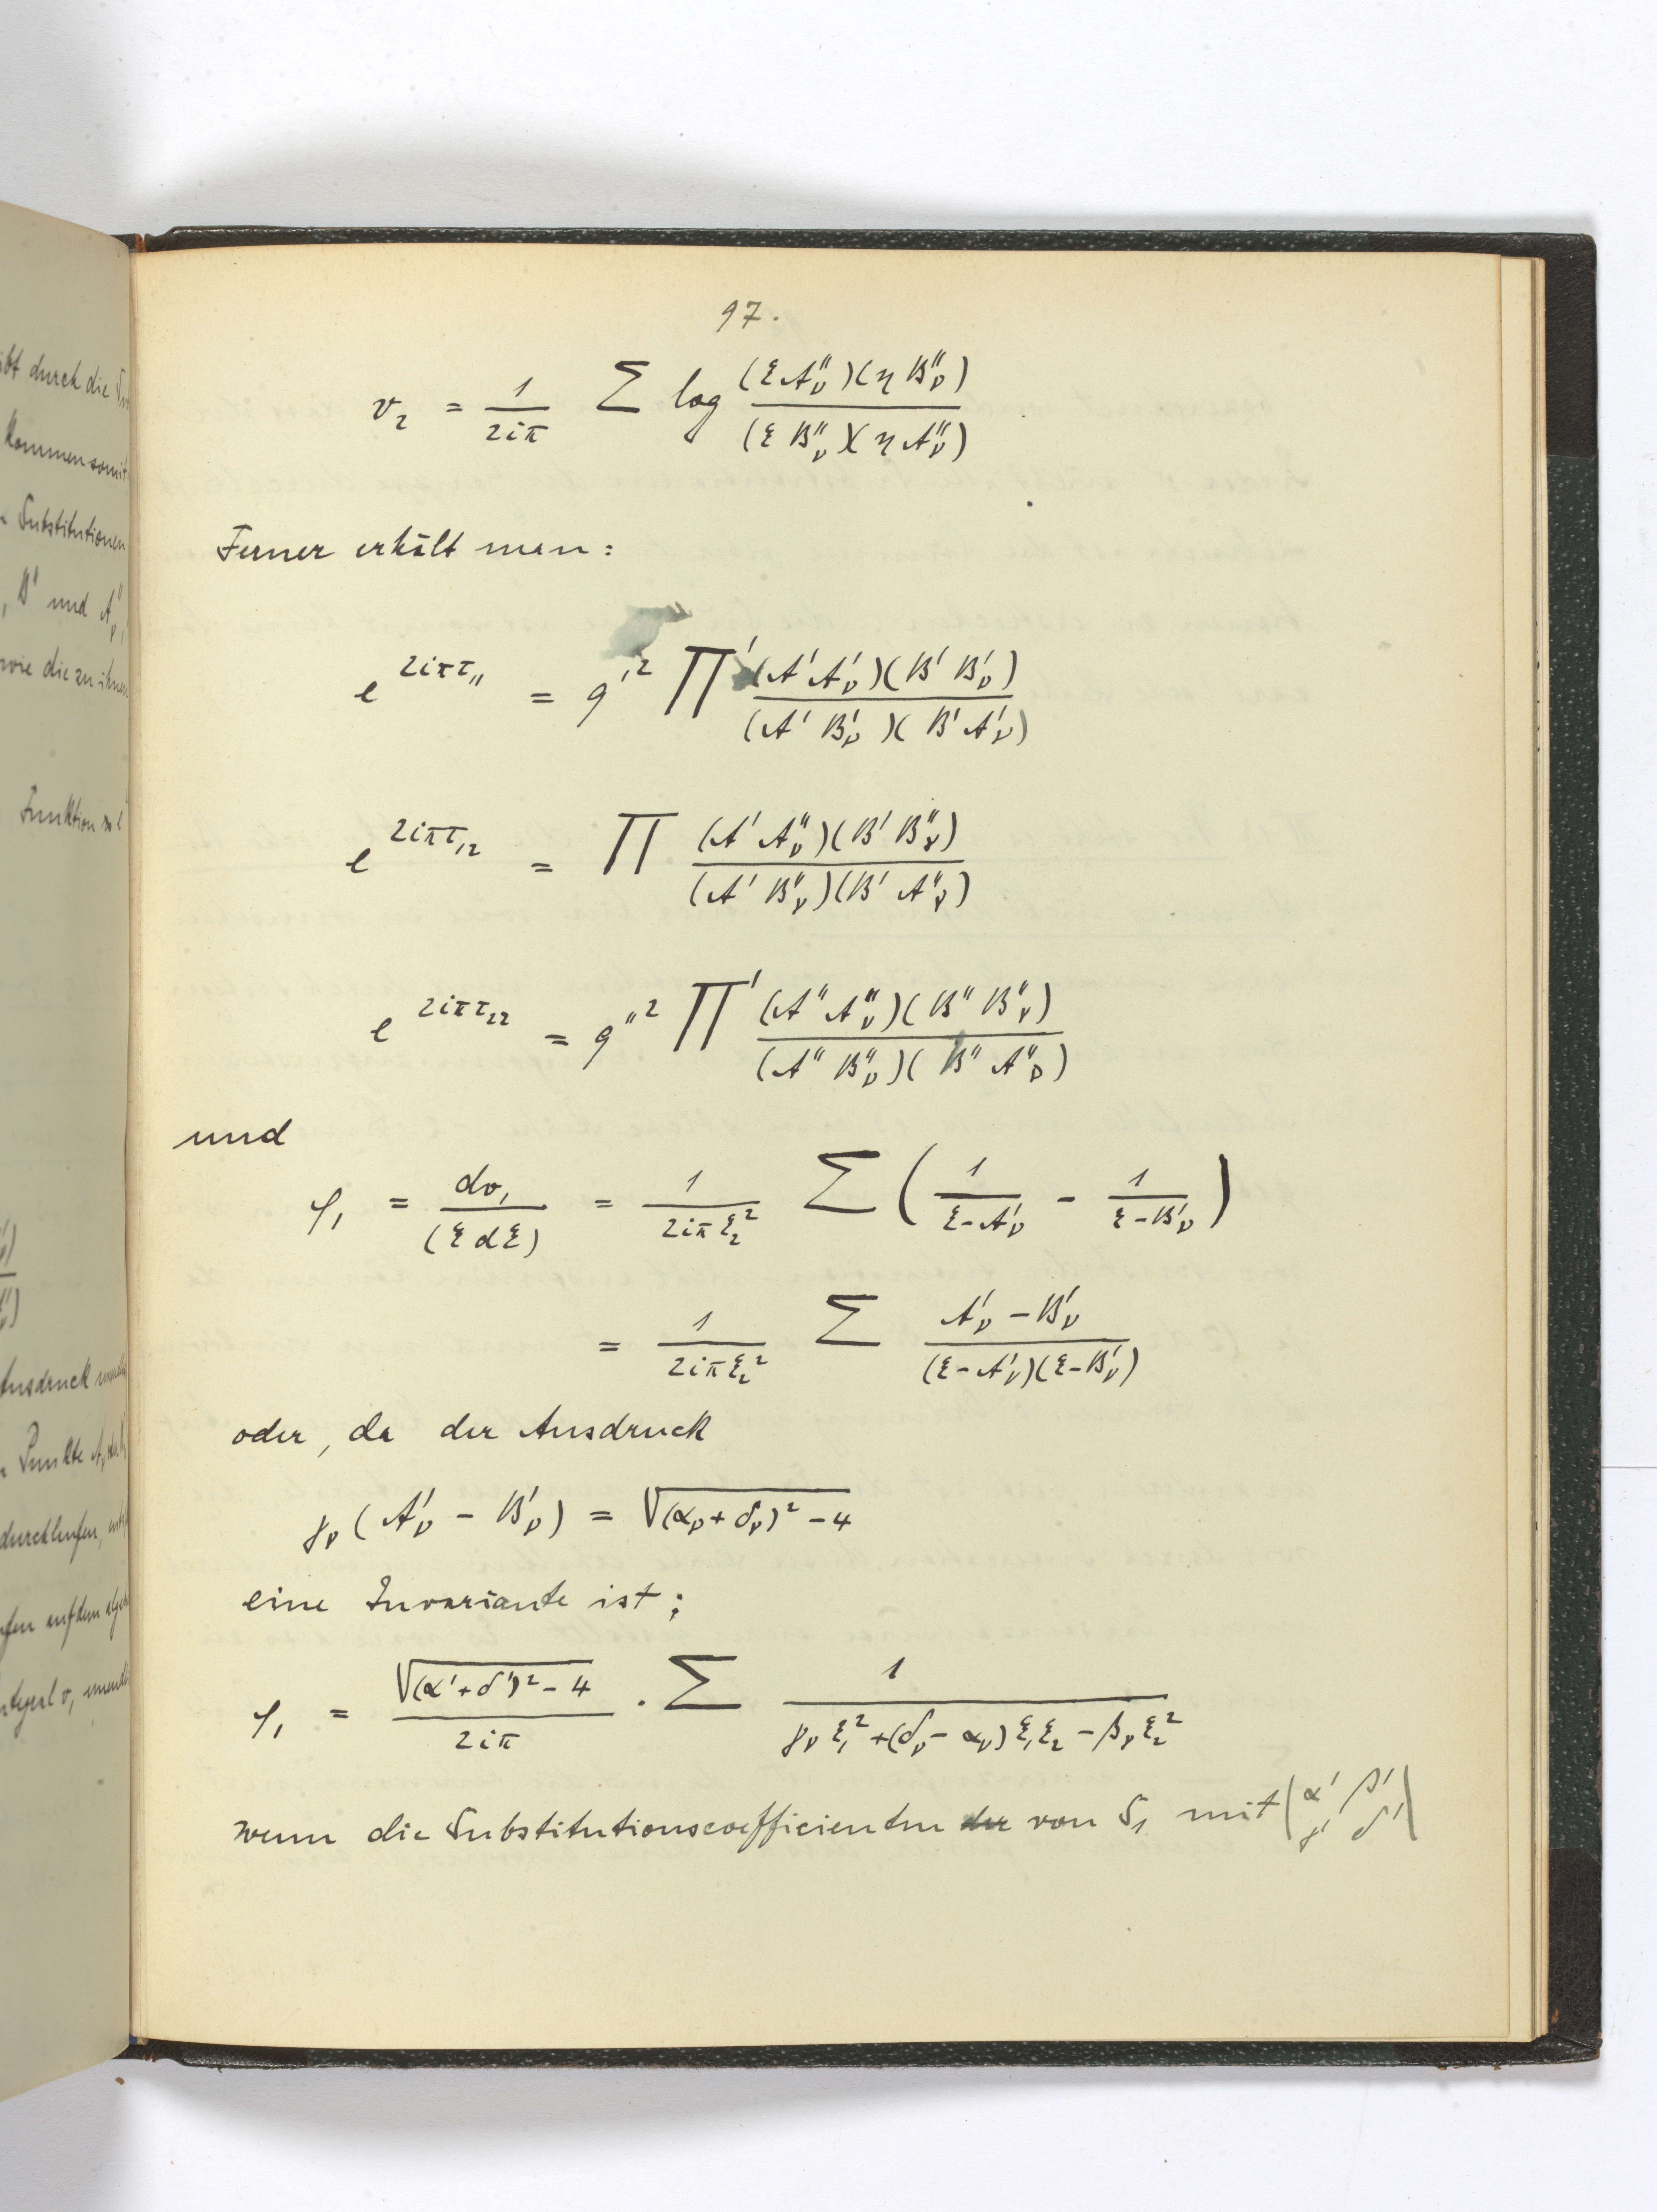 97.
v₂ = 1/(2iπ) Σ log (ξA″ᵥ)(ηB″ᵥ) / (ξB″ᵥ)(ηA″ᵥ)
Ferner erhält man:
e^{2iπτ₁₁} = q′² ∏′ (A′A′ᵥ)(B′B′ᵥ) / (A′B′ᵥ)(B′A′ᵥ)
e^{2iπτ₁₂} = ∏ (A′A″ᵥ)(B′B″ᵥ) / (A′B″ᵥ)(B′A″ᵥ)
e^{2iπτ₂₂} = q″² ∏′ (A″A″ᵥ)(B″B″ᵥ) / (A″B″ᵥ)(B″A″ᵥ)
und
φ₁ = dv₁/(ξdξ) = 1/(2iπξ₂²) Σ (1/(ξ-A′ᵥ) - 1/(ξ-B′ᵥ))
= 1/(2iπξ₂²) Σ (A′ᵥ - B′ᵥ)/((ξ-A′ᵥ)(ξ-B′ᵥ))
oder, da der Ausdruck
γᵥ(A′ᵥ - B′ᵥ) = √((αᵥ+δᵥ)² - 4)
eine Invariante ist;
φ₁ = √((α′+δ′)² - 4)/(2iπ) · Σ 1/(γᵥξ₁² + (δᵥ - αᵥ)ξ₁ξ₂ - βᵥξ₂²)
wenn die Substitutionscoefficienten von S₁ mit |α′ β′ γ′ δ′|